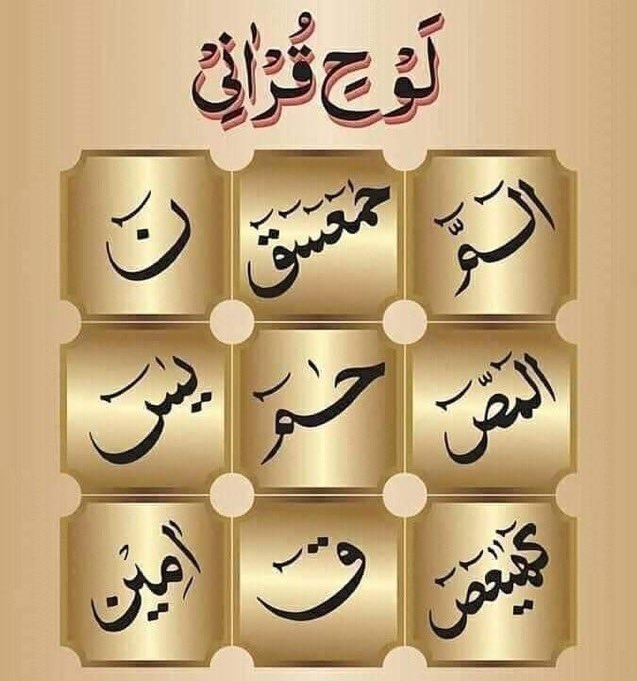 لَوْحِ قُرْاٰنِیْ
الٓمّٓ حٰمٓعٓسٓقٓ نٓ
الٓمّٓصٓ حٰمٓ یٰسٓ
كٓهٰیٰعٓصٓ قٓ اٰمِیْن